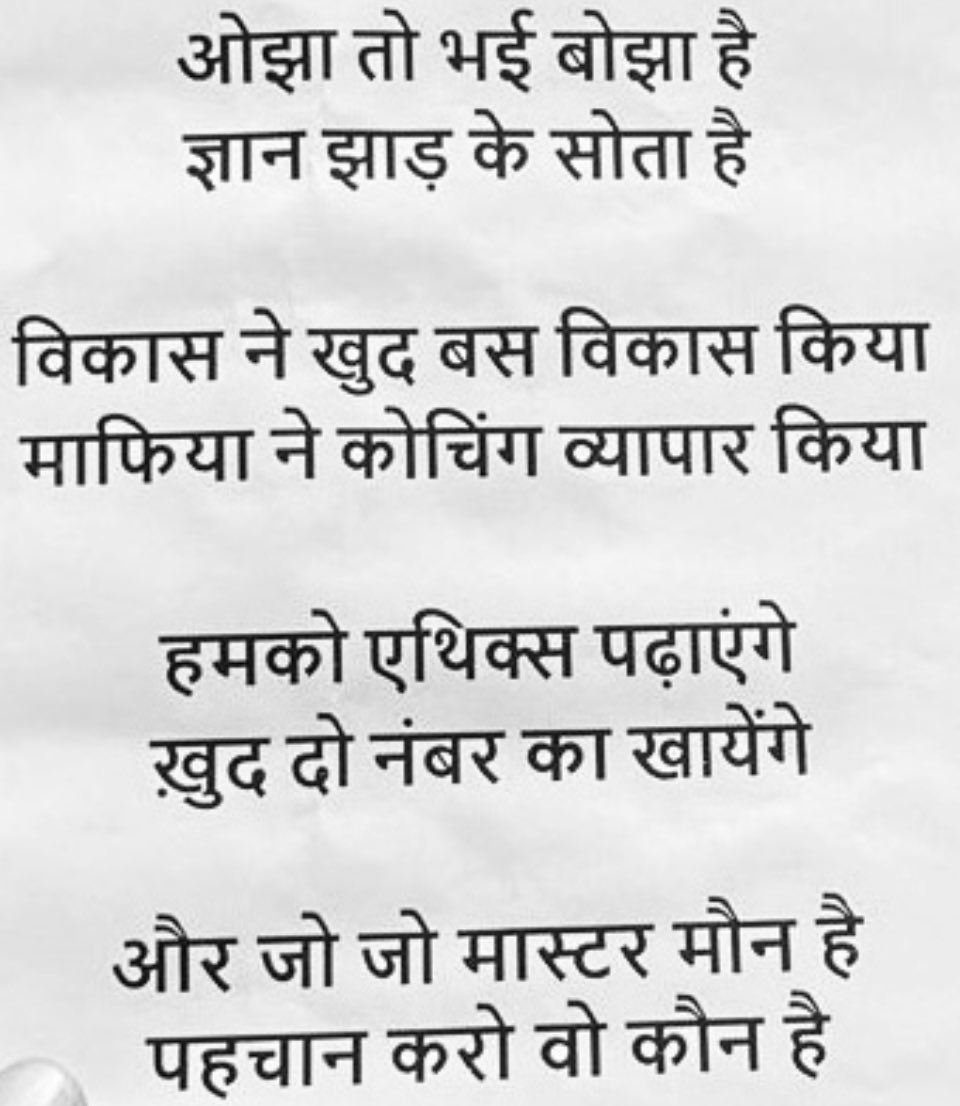 ओझा तो भई बोझा है
ज्ञान झाड़ के सोता है
विकास ने खुद बस विकास किया
माफिया ने कोचिंग व्यापार किया
हमको एथिक्स पढ़ाएंगे
ख़ुद दो नंबर का खायेंगे
और जो जो मास्टर मौन है
पहचान करो वो कौन है